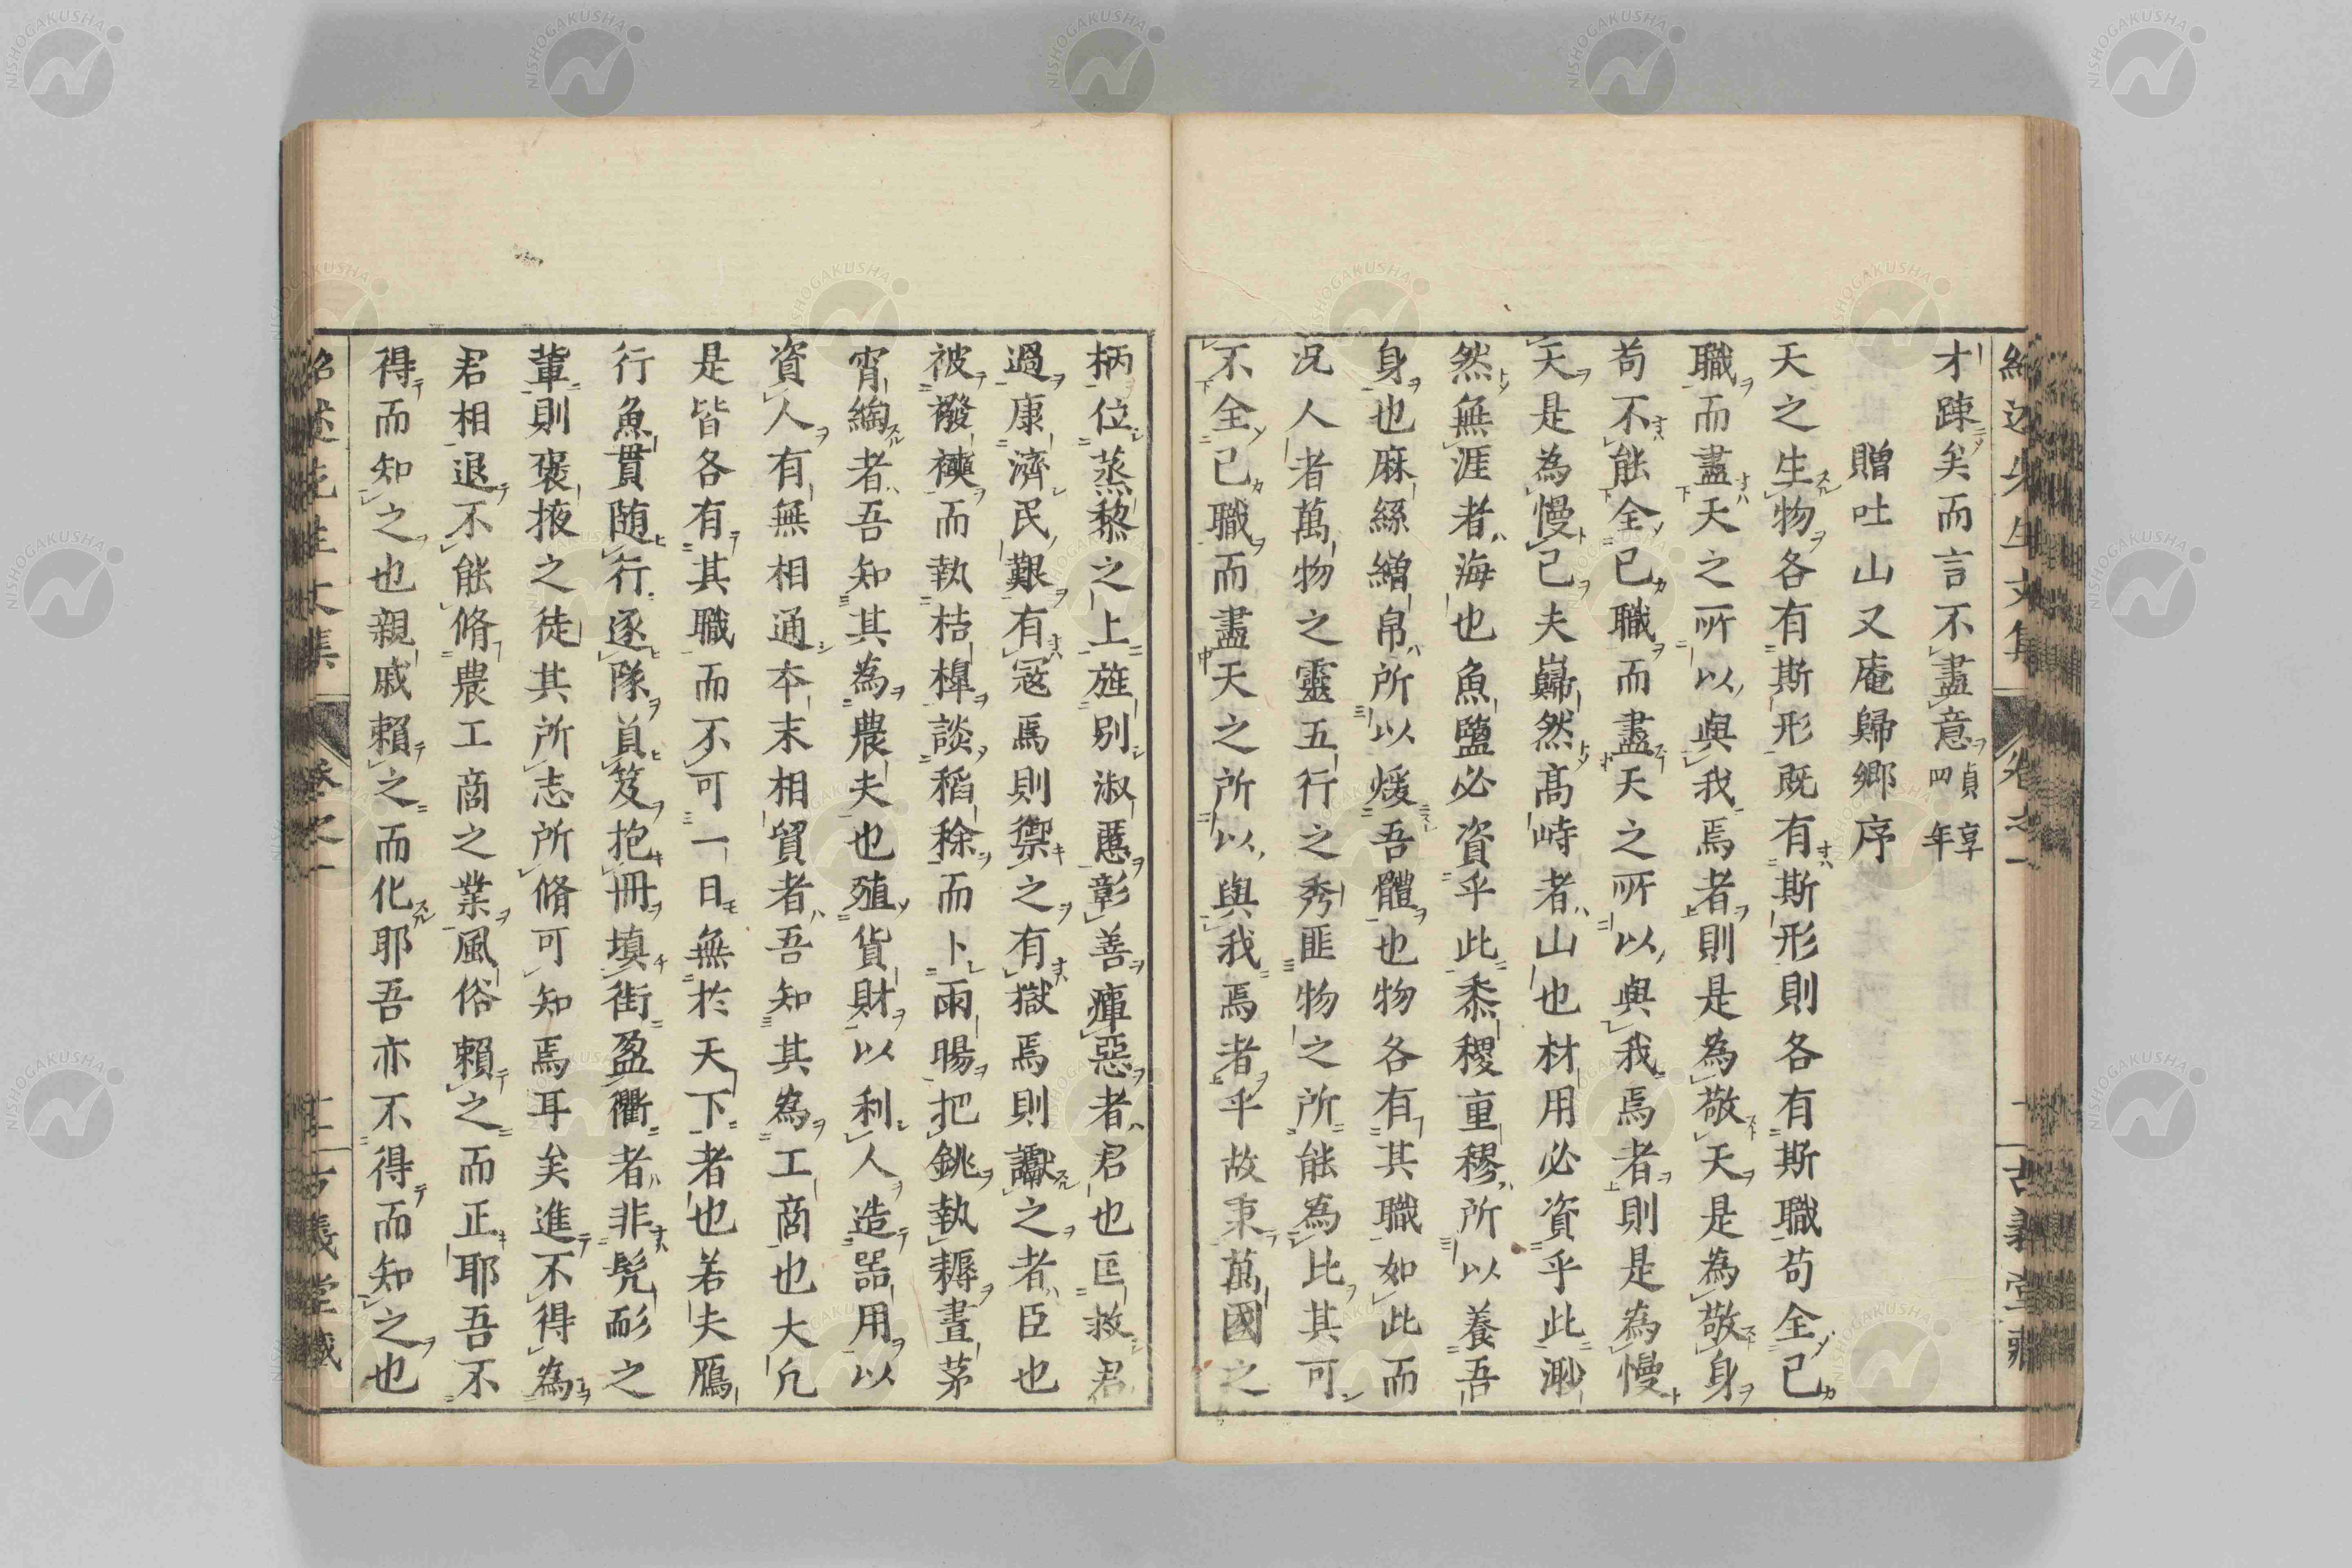 紹述先生文集 卷之一 古義堂藏
才踈矣而言不盡意 貞享四年
贈吐山又庵歸鄉序
天之生物各有斯形既有斯形則各有斯職苟全己
職而盡天之所以與我焉者則是為敬天是為敬身
苟不能全己職而盡天之所以與我焉者則是為慢
天是為慢己夫巋然高峙者山也材用必資乎此渺
然無涯者海也魚鹽必資乎此黍稷重穋所以養吾
身也麻絲繒帛所以煖吾體也物各有其職如此而
况人者萬物之靈五行之秀匪物之所能為比其可
不全己職而盡天之所以與我焉者乎故秉萬國之
柄位蒸黎之上旌別淑慝彰善癉惡者君也匡救君
過康濟民艱有冦焉則禦之有獄焉則讞之者臣也
被襏襫而執桔槹談稻稌而卜雨暘把銚執耨晝茅
宵綯者吾知其為農夫也殖貨財以利人造噐用以
資人有無相通本末相貿者吾知其為工商也大凢
是皆各有其職而不可一日無於天下者也若夫鴈
行魚貫随行逐隊負笈抱冊填街盈衢者非髠耏之
輩則褒掖之徒其所志所脩可知焉耳矣進不得為
君相退不能脩農工商之業風俗賴之而正耶吾不
得而知之也親戚賴之而化耶吾亦不得而知之也
紹述先生文集 卷之一 古義堂藏
NISHOGAKUSHA